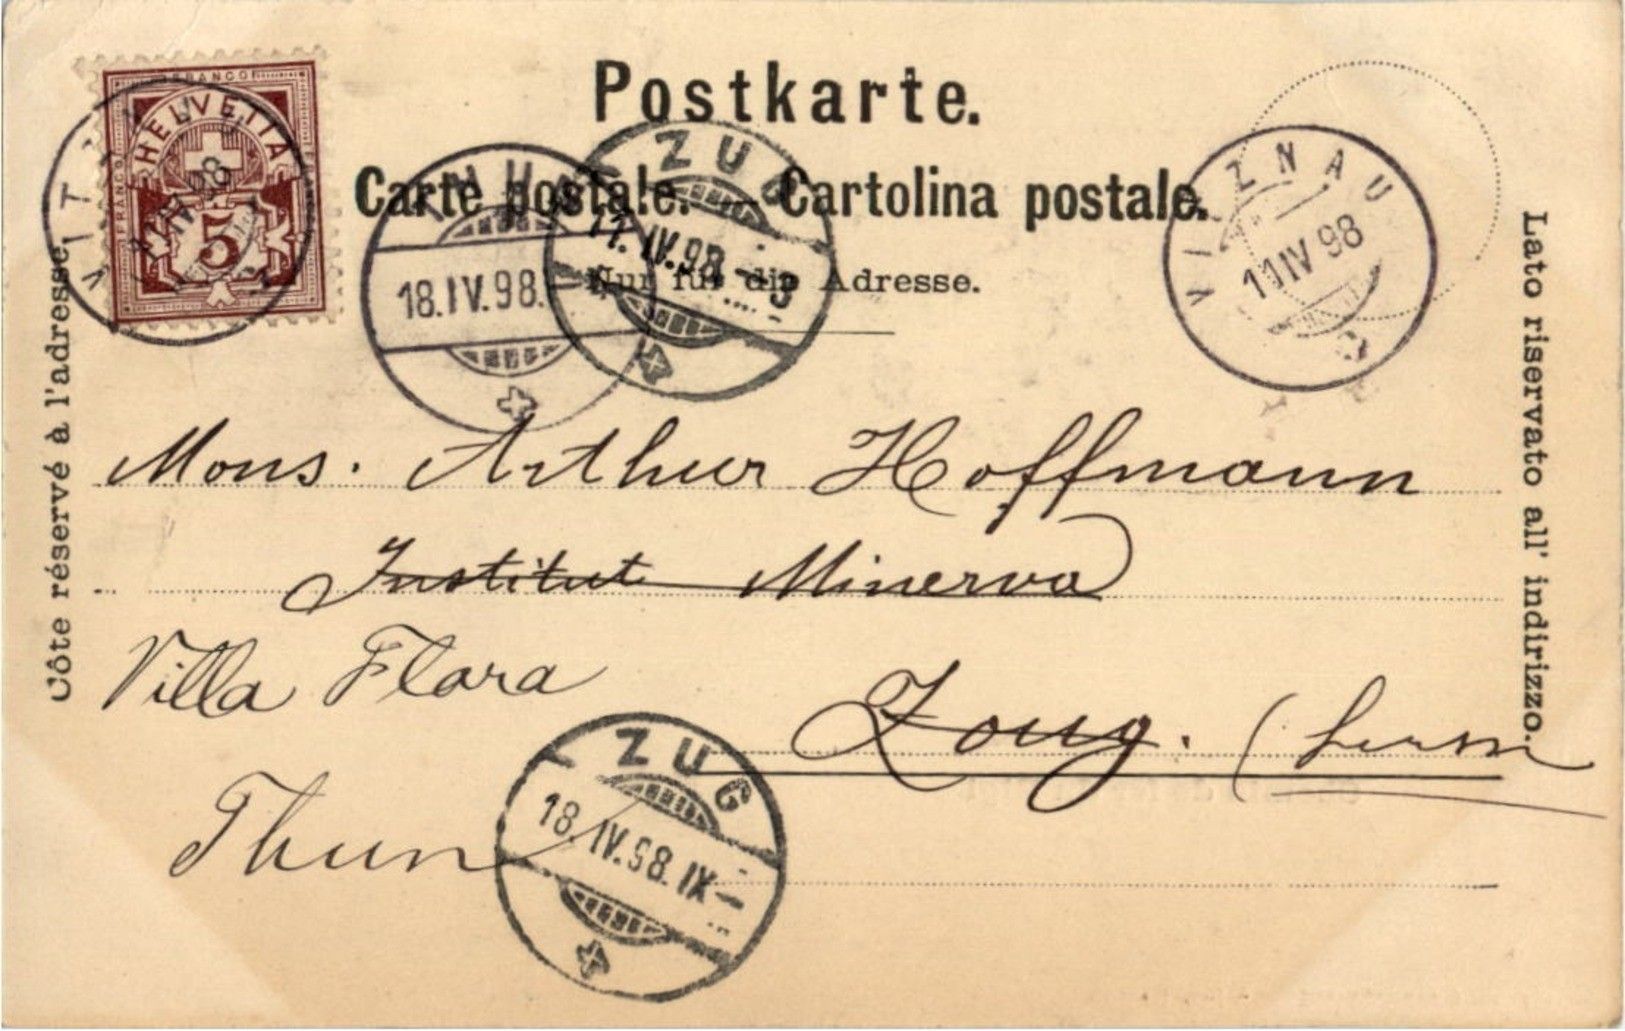 Postkarte.
Carte postale. — Cartolina postale.
Nur für die Adresse.
Côte réservé à l'adresse.
Lato riservato all' indirizzo.
FRANCO
FRANCO
HELVETIA
5
98
ZUG
11.IV.98
18.IV.98.
VIZNAU
11 IV 98
Mons. Arthur Hoffmann
Institut Minerva
Villa Flora
Zoug.
Thun
ZUG
18.IV.98.IX